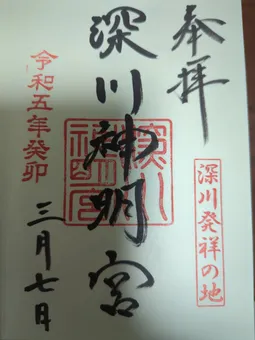 奉拝
深川発祥の地
深川神明宮
令和五年癸卯
三月七日